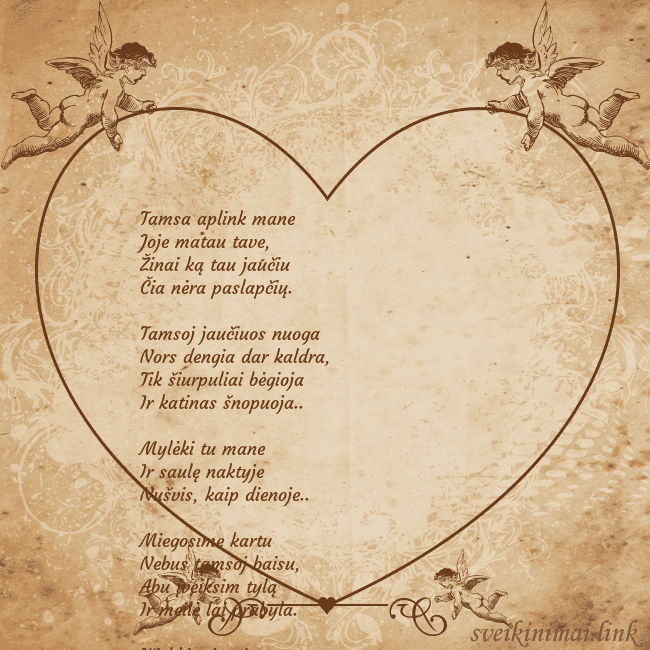 Tamsa aplink mane
Joje matau tave,
Žinai ką tau jaučiu
Čia nėra paslapčių.
Tamsoj jaučiuos nuoga
Nors dengia dar kaldra,
Tik šiurpuliai bėgioja
Ir katinas šnopuoja..
Mylėki tu mane
Ir saulę naktyje
Nušvis, kaip dienoje..
Miegosime kartu
Nebus tamsoj baisu,
Abu įveiksim tylą
Ir meilė lai prabyla.
sveikinimai.link